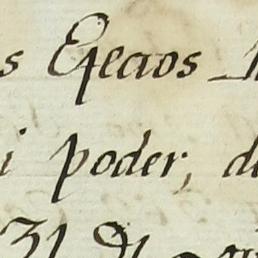 s Efectos
i poder, de
31 De